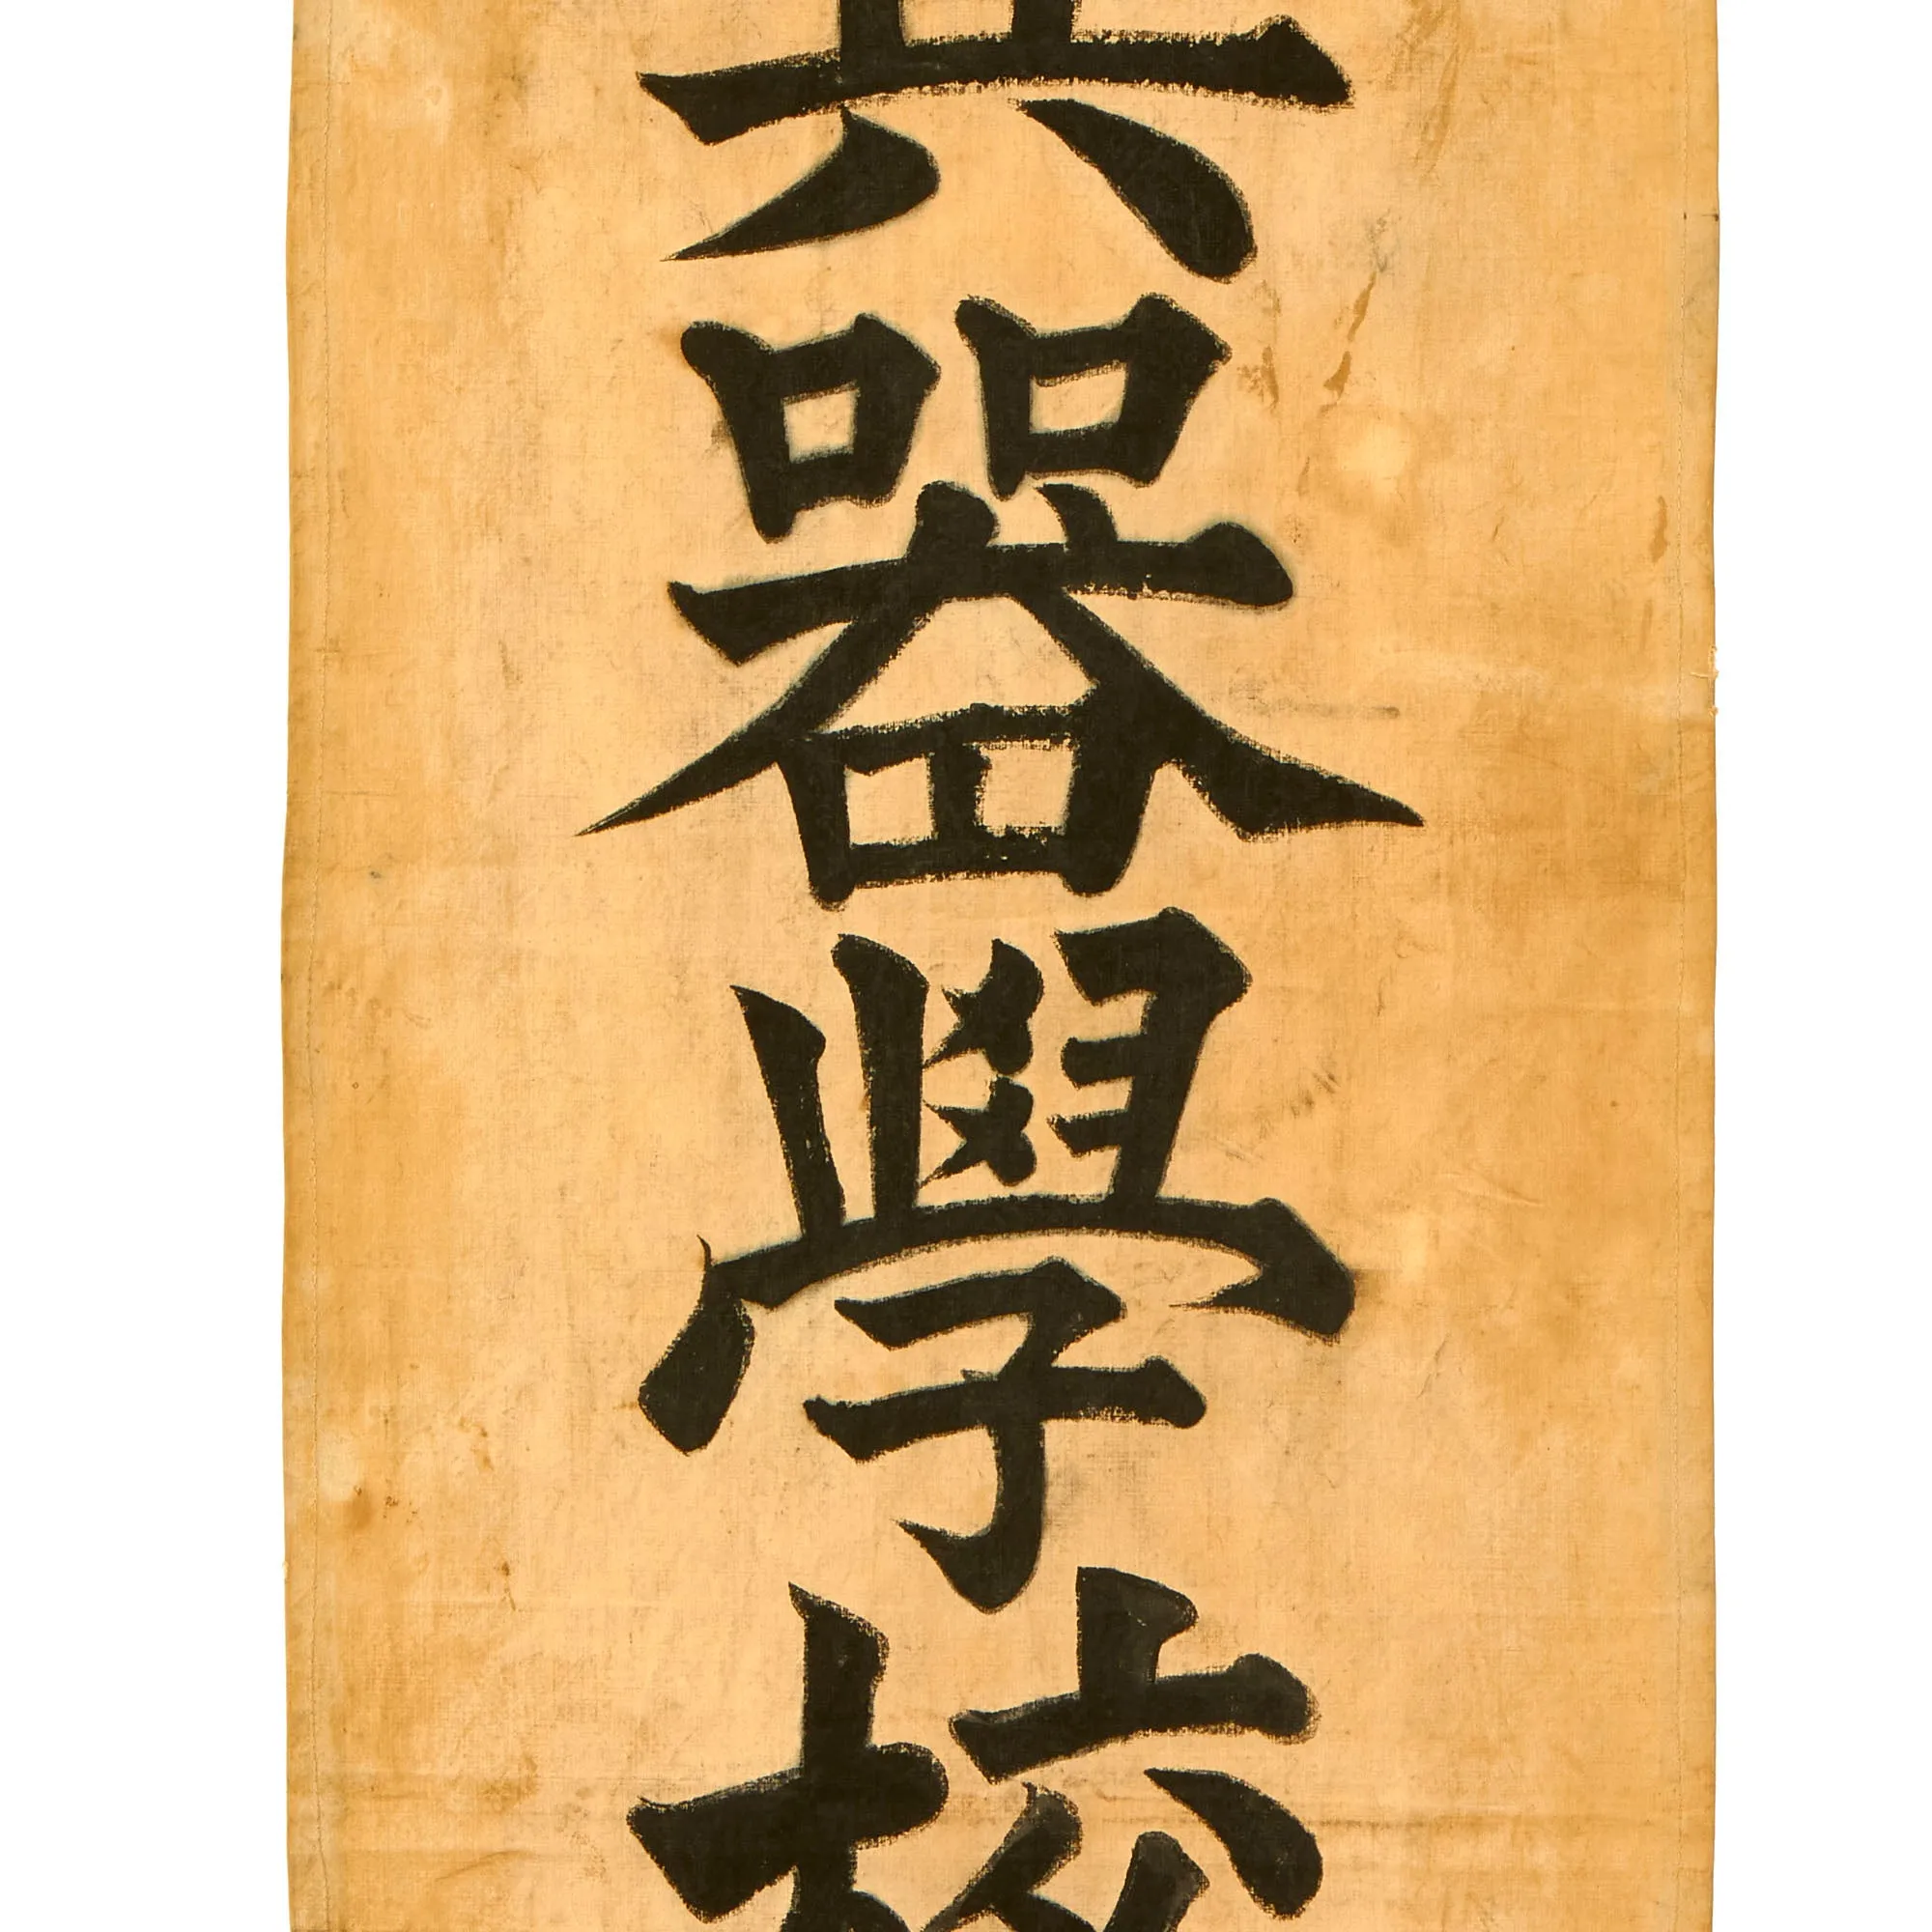 兵器學校